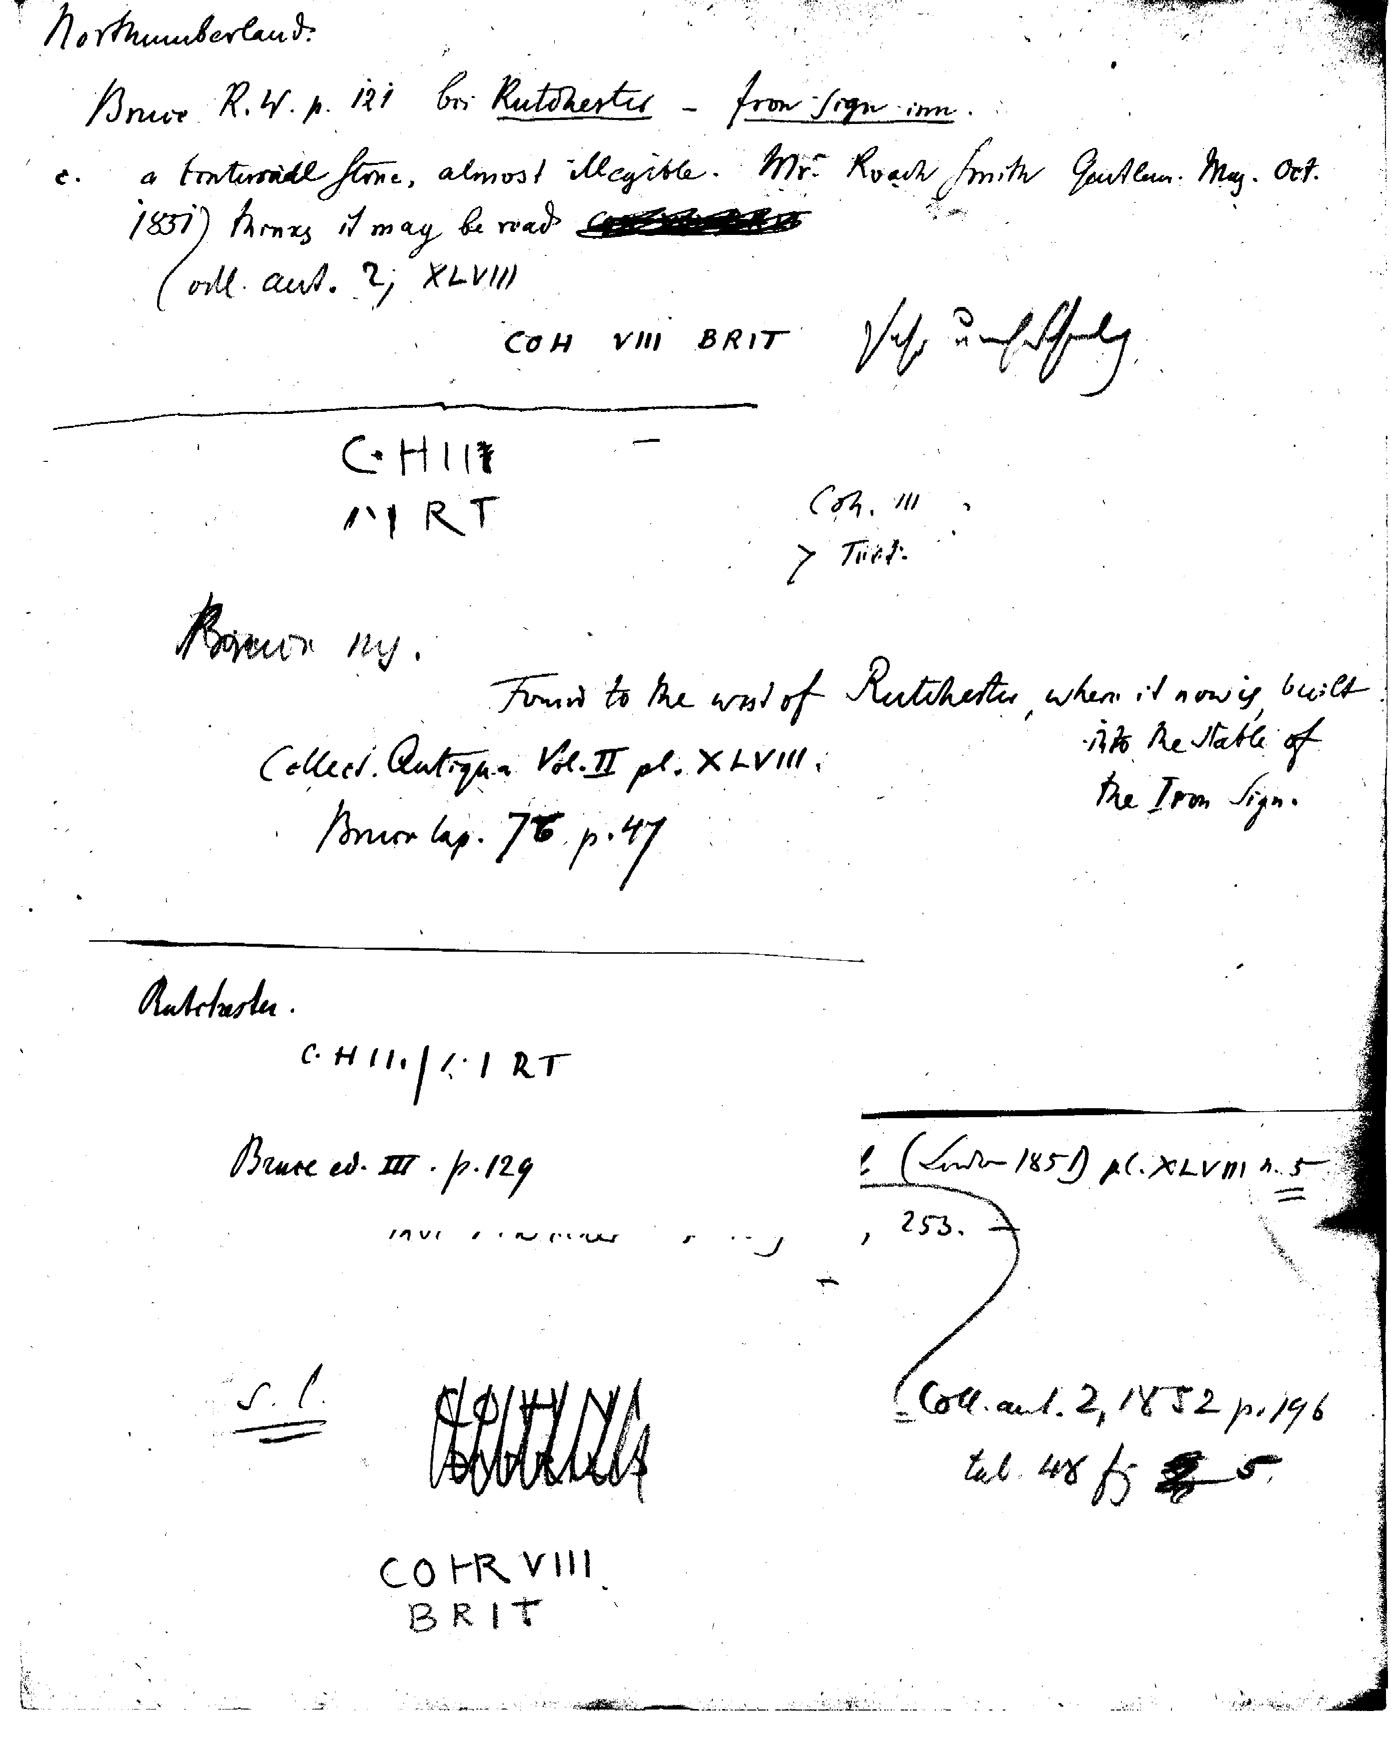 Northumberland.
Bruce R.W. p. 121 bei Rutchester – Iron-Sign-inn.
c. a centurial stone, almost illegible. Mr. Roach Smith Gentlem. Mag. Oct.
1851) thinks it may be read
(oll. ant. 2, XLVIII
COH VIII BRIT
C·HIII
RT
Coh. III
> 
Bruce
Found to the west of Rutchester, where it now is, built
into the stable of
the Iron Sign.
Collect. Antiqua Vol. II pl. XLVIII.
Bruce lap. 76. p. 47
Rutchester.
C·HIII./ RT
Bruce ed. III. p. 129
(London 1851) pl. XLVIII n. 5
, 253. –
s. l.
= Coll. ant. 2, 1852 p. 196
tab. 48 fg 5.
COHR VIII
BRIT